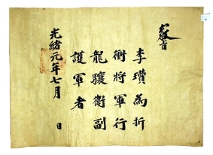 教旨
李瓚為折
衝將軍行
龍驤衛副
護軍者
光緒元年七月 日